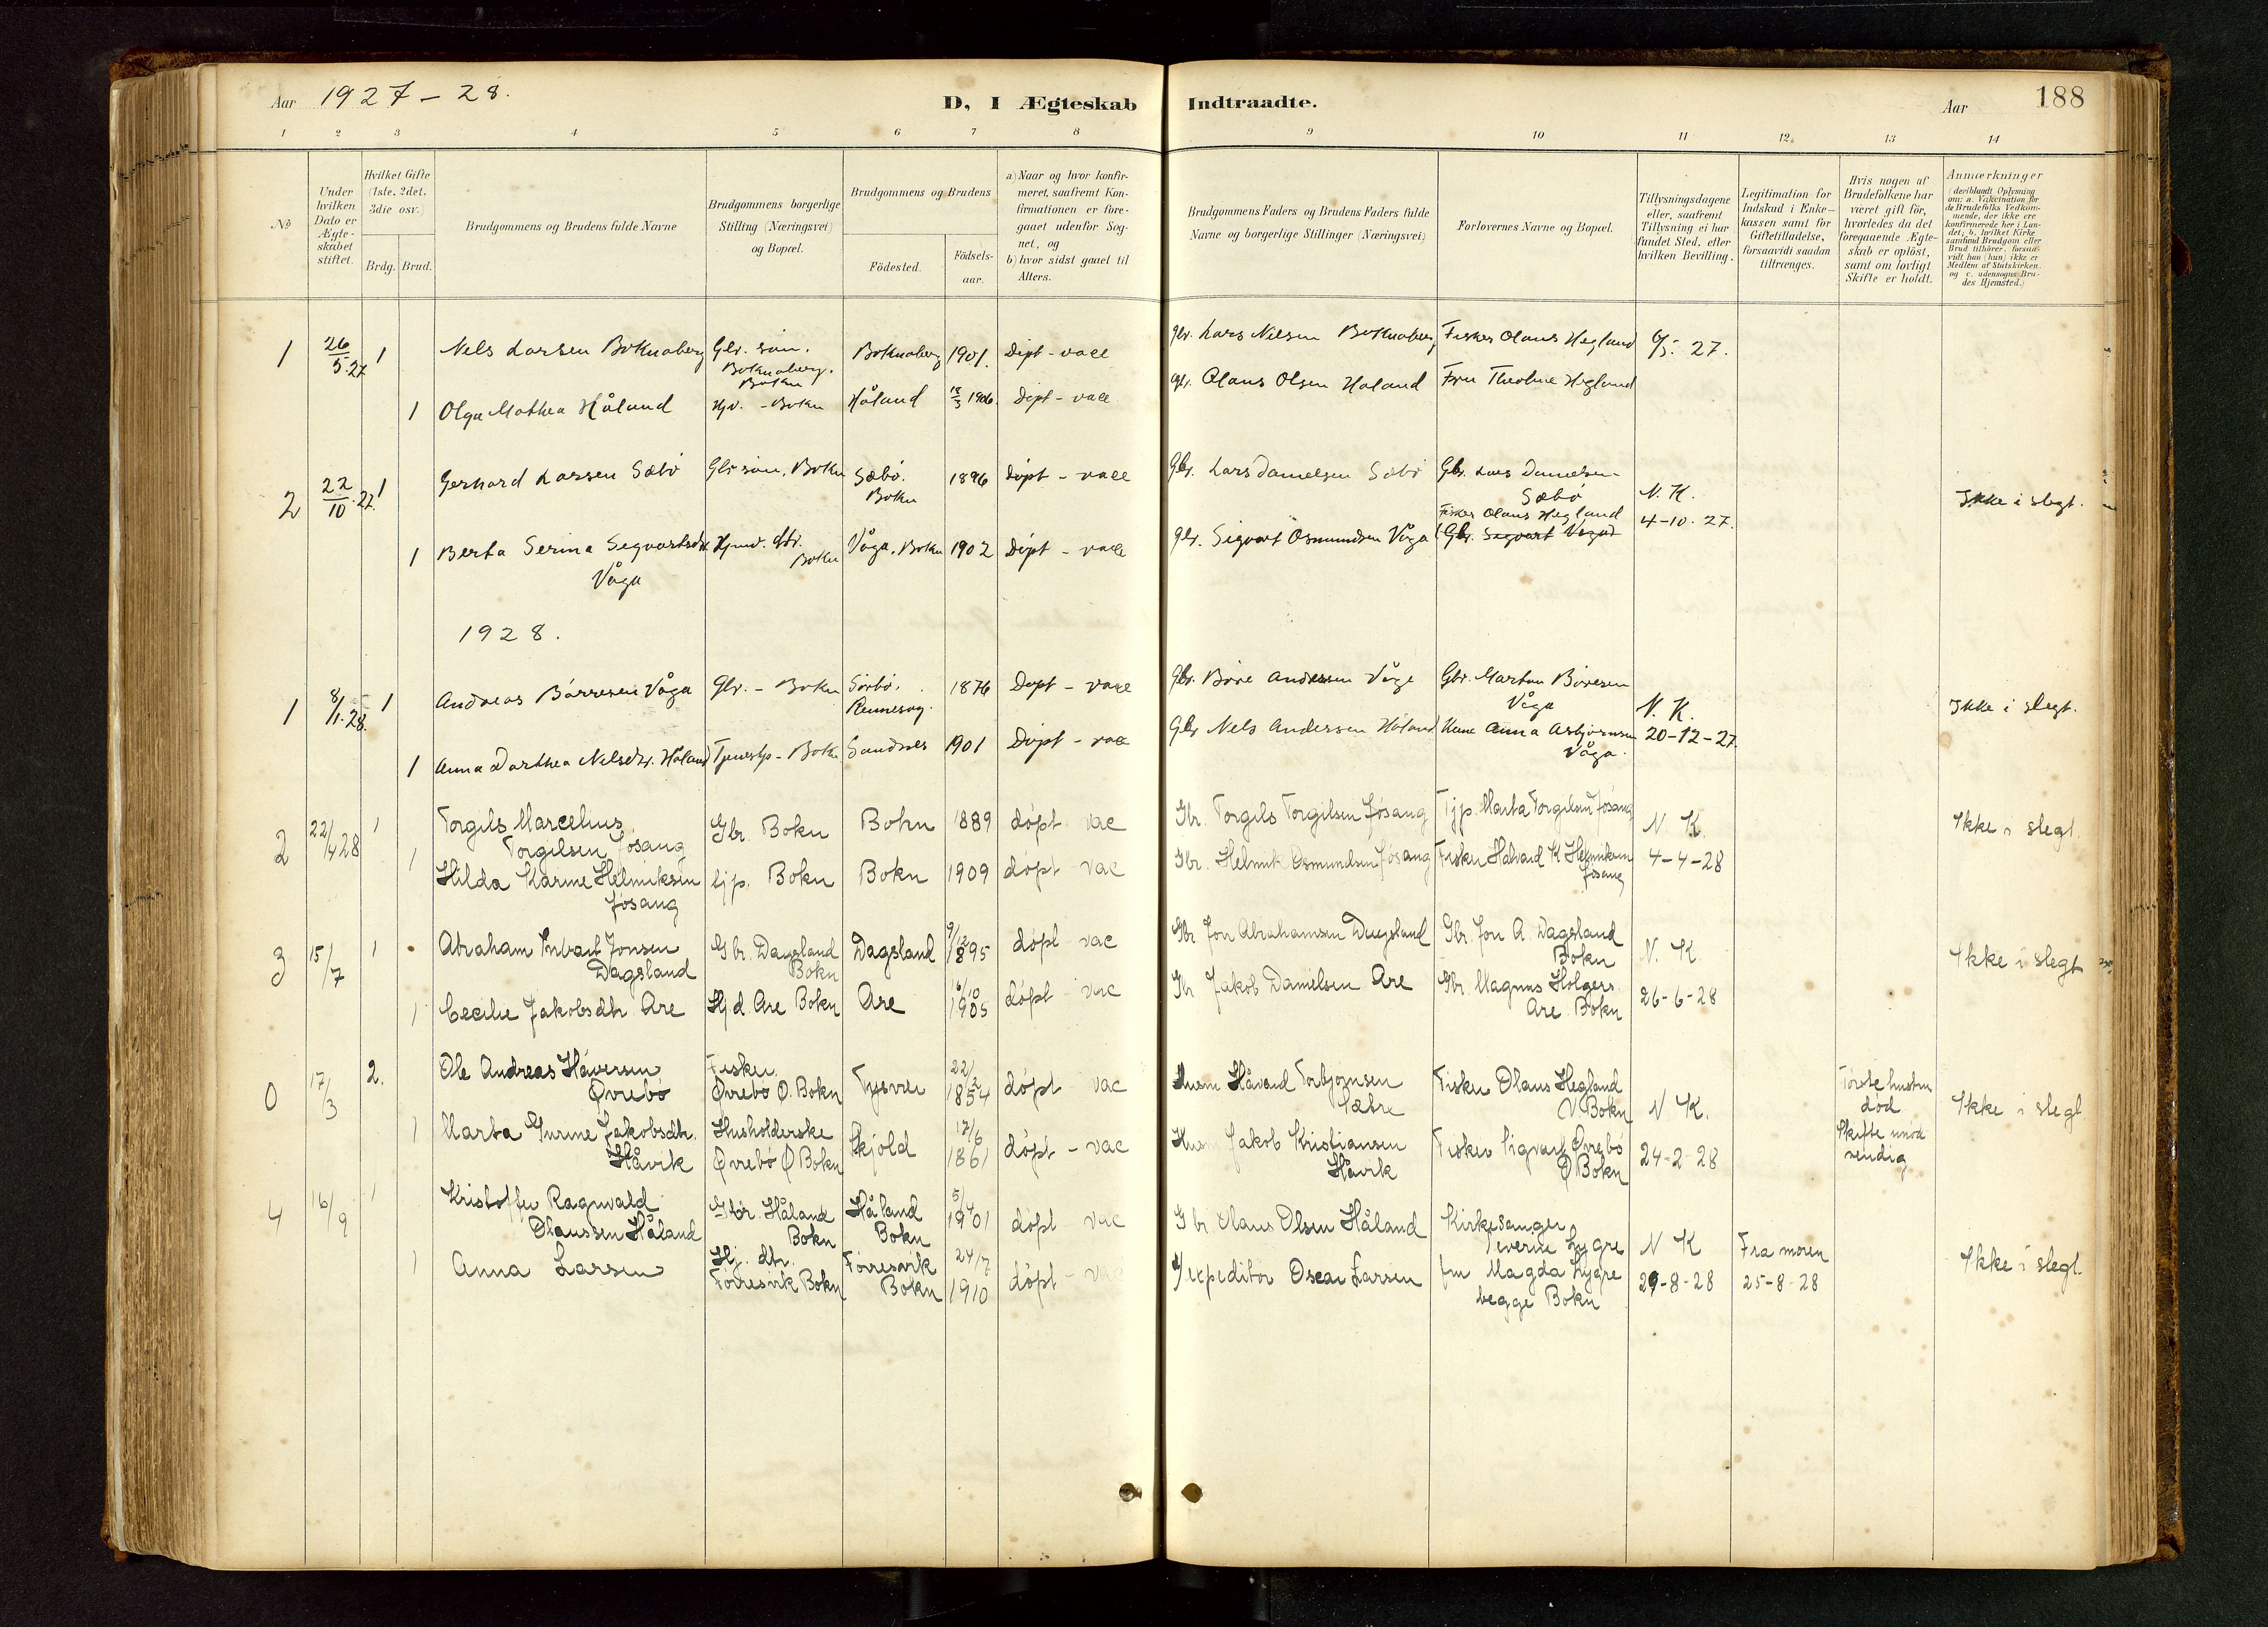 Aar 1927-28.
D, I Ægteskab Indtraadte.
Aar
188
1 2 3 4 5 6 7 8 9 10 11 12. 13 14
No
Under hvilken Dato er Ægte-skabet stiftet.
Hvilket Gifte (1ste. 2det. 3die osv.)
Brdg. Brud.
Brudgommens og Brudens fulde Navne
Brudgommens borgerlige Stilling (Næringsvei) og Bopæl.
Brudgommens og Brudens
Födested.
Födsels-aar.
a) Naar og hvor konfir-meret, saafremt Kon-firmationen er fore-gaaet udenfor Sog-net, og
b) hvor sidst gaaet til Alters.
Brudgommens Faders og Brudens Faders fulde Navne og borgerlige Stillinger (Næringsvei)
Forlovernes Navne og Bopæl.
Tillysningsdagene eller, saafremt Tillysning ei har fundet Sted, efter hvilken Bevilling.
Legitimation for Indskud i Enke-kassen samt for Giftetilladelse, forsaavidt saadan tiltrænges.
Hvis nogen af Brudefolkene har været gift för, hvorledes da det foregaaende Ægte-skab er oplöst, samt om lovligt Skifte er holdt.
Anmærkninger
(deriblandt Oplysning om: a. Vakcination for de Brudefolks Vedkom-mende, der ikke ere konfirmerede her i Lan-det; b. hvilket Kirke samfund Brudgom eller Brud tilhörer, forsaa-vidt han (hun) ikke er Medlem af Statskirken, og c. udensogns Bru-des Hjemsted.)
1 26/5.27 1 Nels Larsen Boknaberg Gbr. søn. Boknaberg. Bokn Boknaberg 1901. Døpt - vacc gbr. Lars Nilsen Boknaberg Fisker Olaus Hegland 6/5. 27.
1 Olga Mathea Håland Hjv. - Bokn Håland 18/3 1906. Døpt - vacc gbr. Olaus Olsen Håland Fru Theoline Hegland
2 22/10.27. 1 Gerhard Larsen Sæbø Gbr søn, Bokn Sæbø. Bokn 1896 døpt - vacc Gbr. Lars Danielsen Sæbø Gbr. Lars Danielsen Sæbø N. K. Ikke i slegt.
1 Berta Serina Segvartsdtr. Våga Hjmv. dtr. Bokn Våga, Bokn 1902 Døpt - vacc gbr. Sigvart Osmundsen Våga Fisker Olaus Hegland Gbr. Segvart Vaga 4-10. 27.
1928.
1 8/1.28. 1 Andreas Børresen Våga Gbr. - Bokn Sørbø, Rennesøy. 1876 Døpt - vacc Gbr. Børe Andersen Våge Gbr. Marton Børesen Våga N. K. Ikke i slegt.
1 Anna Dorthea Nelsdtr. Håland Tjenestp - Bokn Sandnes 1901 Døpt - vacc Gbr Nels Andersen Håland Kone Anna Asbjørnsen Våga. 20-12-27.
2 22/4 28 1 Torgils Marcelius Torgilsen Jøsang Gbr. Bokn Bokn 1889 døpt vac Gbr. Torgils Torgilsen Jøsang Tjp. Marta Torgilsen Jøsang N. K. Ikke i slegt.
1 Hilda Karine Helmiksen Jøsang tjp. Bokn Bokn 1909 døpt vac Gbr. Helmik Osmundsen Jøsang Fisker Halvard K Helmiksen Jøsang 4-4-28
3 15/7 1 Abraham Jonsen Dagsland Gbr. Dagsland Bokn Dagsland 9/12 1895 døpt vac Gbr Jon Abrahamsen Dagsland Gbr. Jon A. Dagsland Bokn N. K. Ikke i slegt
1 Cecilie Jakobsdtr Are Hj d. Are Bokn Are 16/10 1905 døpt vac Gbr Jakob Danielsen Are Gbr. Magnus Holgers Are Bokn 26-6-28
0 17/3 2. Ole Andreas Håversen Øvrebø Fisker. Øvrebø Ø. Bokn Tysver 22/2 1854 døpt vac Husm Håvard Torbjørnsen Sæbre Fisker Olaus Hegland V Bokn N K. Første hustru død Skifte unød vendig Ikke i slegt
1 Marta Gurine Jakobsdtr. Håvik Husholderske Øvrebø Ø Bokn Skjold 17/6 1861 døpt - vac Husm Jakob Kristiansen Håvik Fisker Sigvart Øvrebø Ø Bokn 24-2-28
4 16/9 1 Kristoffer Ragnvald Olaussen Håland Gbr. Håland Bokn Håland Bokn 5/4 1901 døpt vac Gbr Olaus Olsen Håland Kirkesanger Severin Lygre N K Fra moren Ikke i slegt.
1 Anna Larsen Hj. dtr. Førresvik Bokn Førresvik Bokn 24/7 1910 døpt - vac Expeditør Oscar Larsen fru Magda Lygre begge Bokn 29-8-28 25-8-28